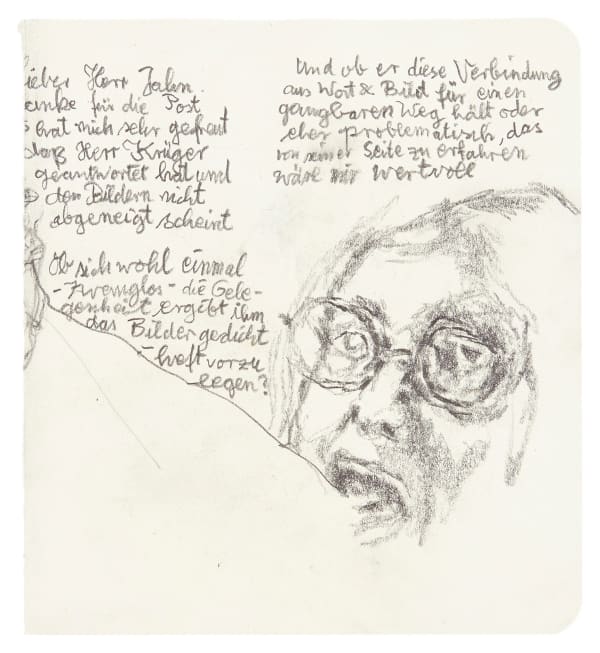 ieber Herr Jahn.
anke für die Post
s hat mich sehr gefreut
daß Herr Krüger
geantwortet hat und
den Bildern nicht
abgeneigt scheint
Ob sich wohl einmal
- zwanglos - die Gele-
genheit ergibt ihm
das Bildergedicht
- heft vorzu
legen?
Und ob er diese Verbindung
aus Wort & Bild für einen
gangbaren Weg hält oder
eher problematisch, das
von seiner Seite zu erfahren
wäre mir wertvoll